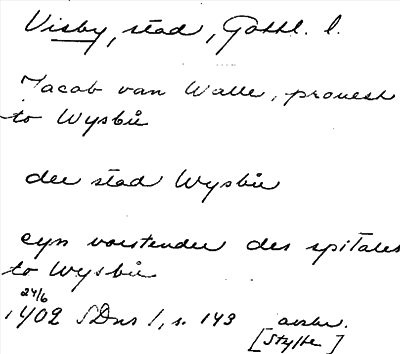 Visby, stad, Gottl. l.
Jacob van Walle, prouest
to Wysbu̇
der stad Wysbu̇
eyn vorstender des spitales
to Wysbu̇
24/6
1402 SDns 1, s. 143 avskr.
[Styffe]